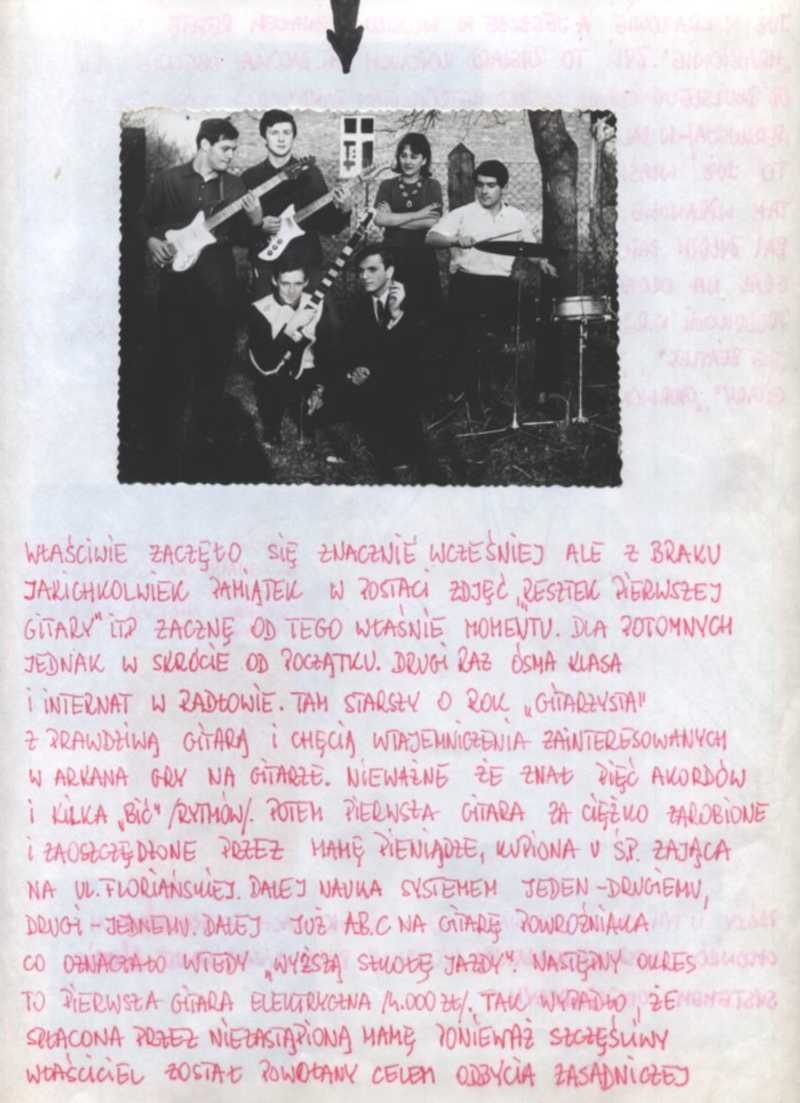 WŁAŚCIWIE ZACZĘŁO SIĘ ZNACZNIE WCZEŚNIEJ ALE Z BRAKU
JAKICHKOLWIEK PAMIĄTEK W POSTACI ZDJĘĆ „RESZTEK PIERWSZEJ
GITARY" ITP ZACZNĘ OD TEGO WŁAŚNIE MOMENTU. DLA POTOMNYCH
JEDNAK W SKRÓCIE OD POCZĄTKU. DRUGI RAZ ÓSMA KLASA
I INTERNAT W RADŁOWIE. TAM STARSZY O ROK „GITARZYSTA"
Z PRAWDZIWĄ GITARĄ I CHĘCIĄ WTAJEMNICZENIA ZAINTERESOWANYCH
W ARKANA GRY NA GITARZE. NIEWAŻNE ŻE ZNAŁ PIĘĆ AKORDÓW
I KILKA „BIĆ" /RYTMÓW/. POTEM PIERWSZA GITARA ZA CIĘŻKO ZAROBIONE
I ZAOSZCZĘDZONE PRZEZ MAMĘ PIENIĄDZE, KUPIONA U Ś.P. ZAJĄCA
NA UL. FLORIAŃSKIEJ. DALEJ NAUKA SYSTEMEM JEDEN-DRUGIEMU,
DRUGI-JEDNEMU. DALEJ JUŻ A.B.C NA GITARĘ POWROŹNIAKA
CO OZNACZAŁO WTEDY „WYŻSZĄ SZKOŁĘ JAZDY". NASTĘPNY OKRES
TO PIERWSZA GITARA ELEKTRYCZNA /4.000 ZŁ/. TAK WYPADŁO, ŻE
SPŁACONA PRZEZ NIEZASTĄPIONĄ MAMĘ PONIEWAŻ SZCZĘŚLIWY
WŁAŚCICIEL ZOSTAŁ POWOŁANY CELEM ODBYCIA ZASADNICZEJ